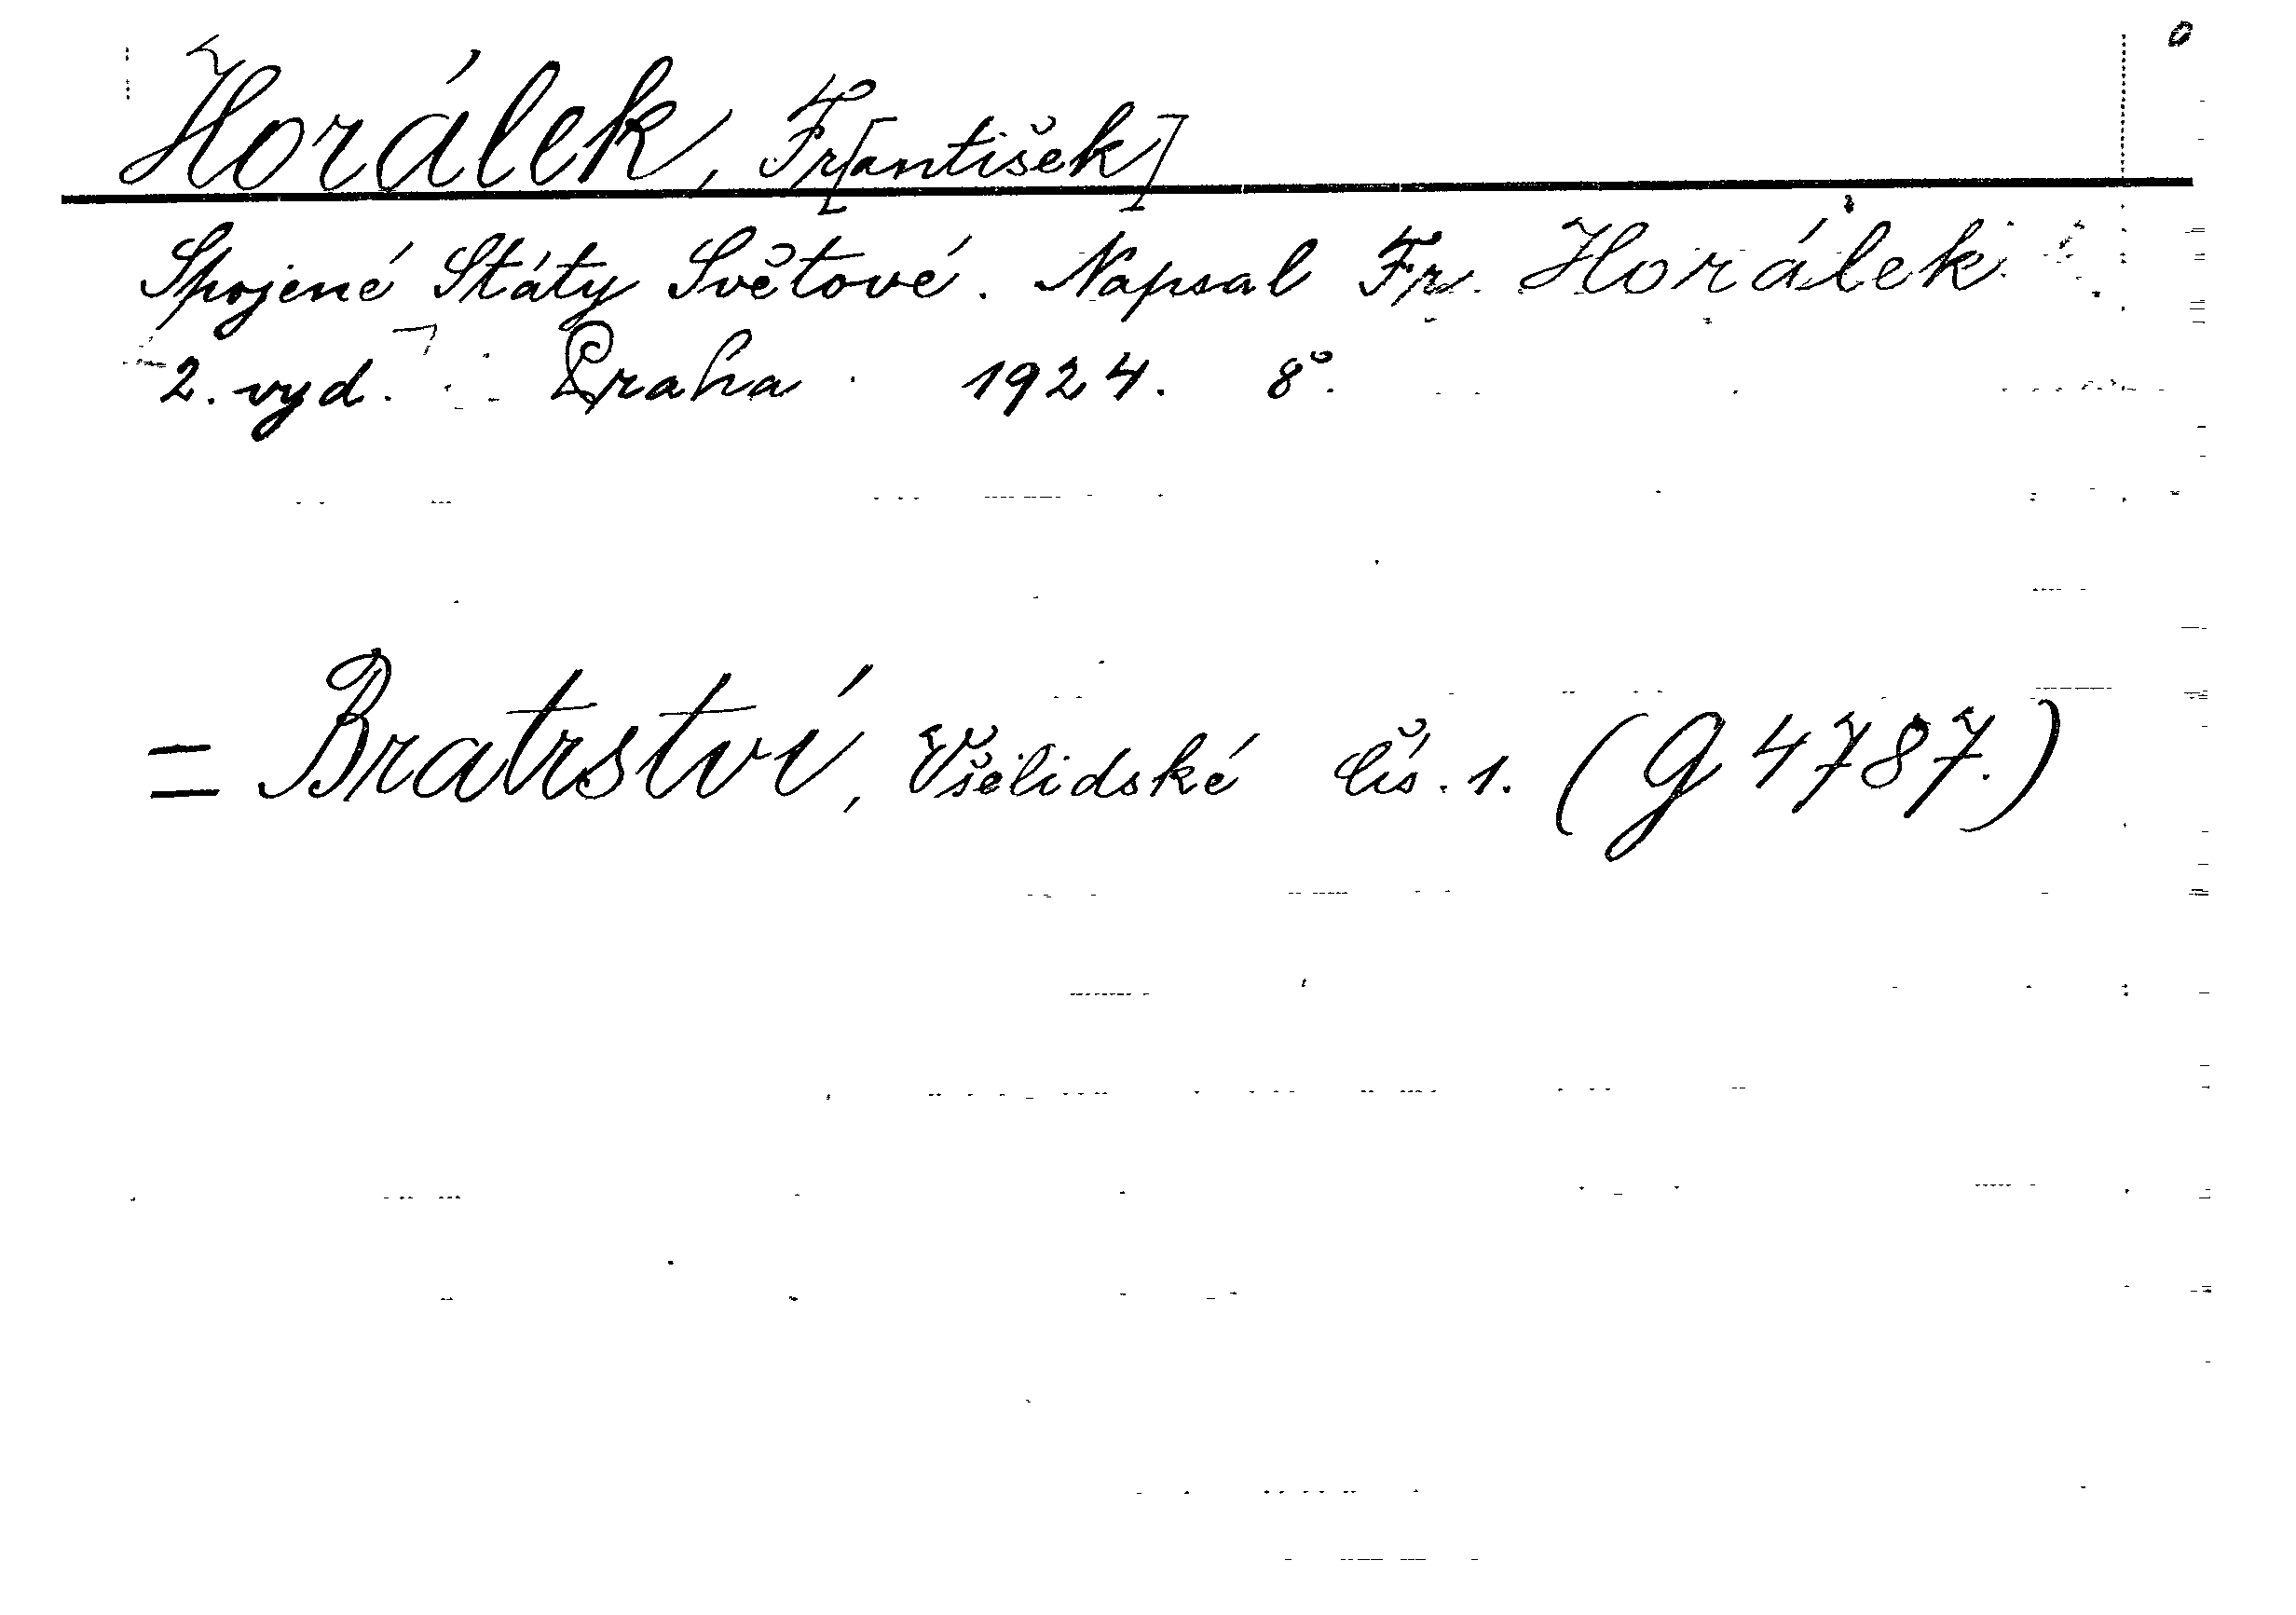 Horálek, Fr[antišek]
Spojené Státy Světové. Napsal Fr. Horálek.
2. vyd. Praha 1924. 8°.
= Bratrství, Všelidské čís. 1. (G 4787.)